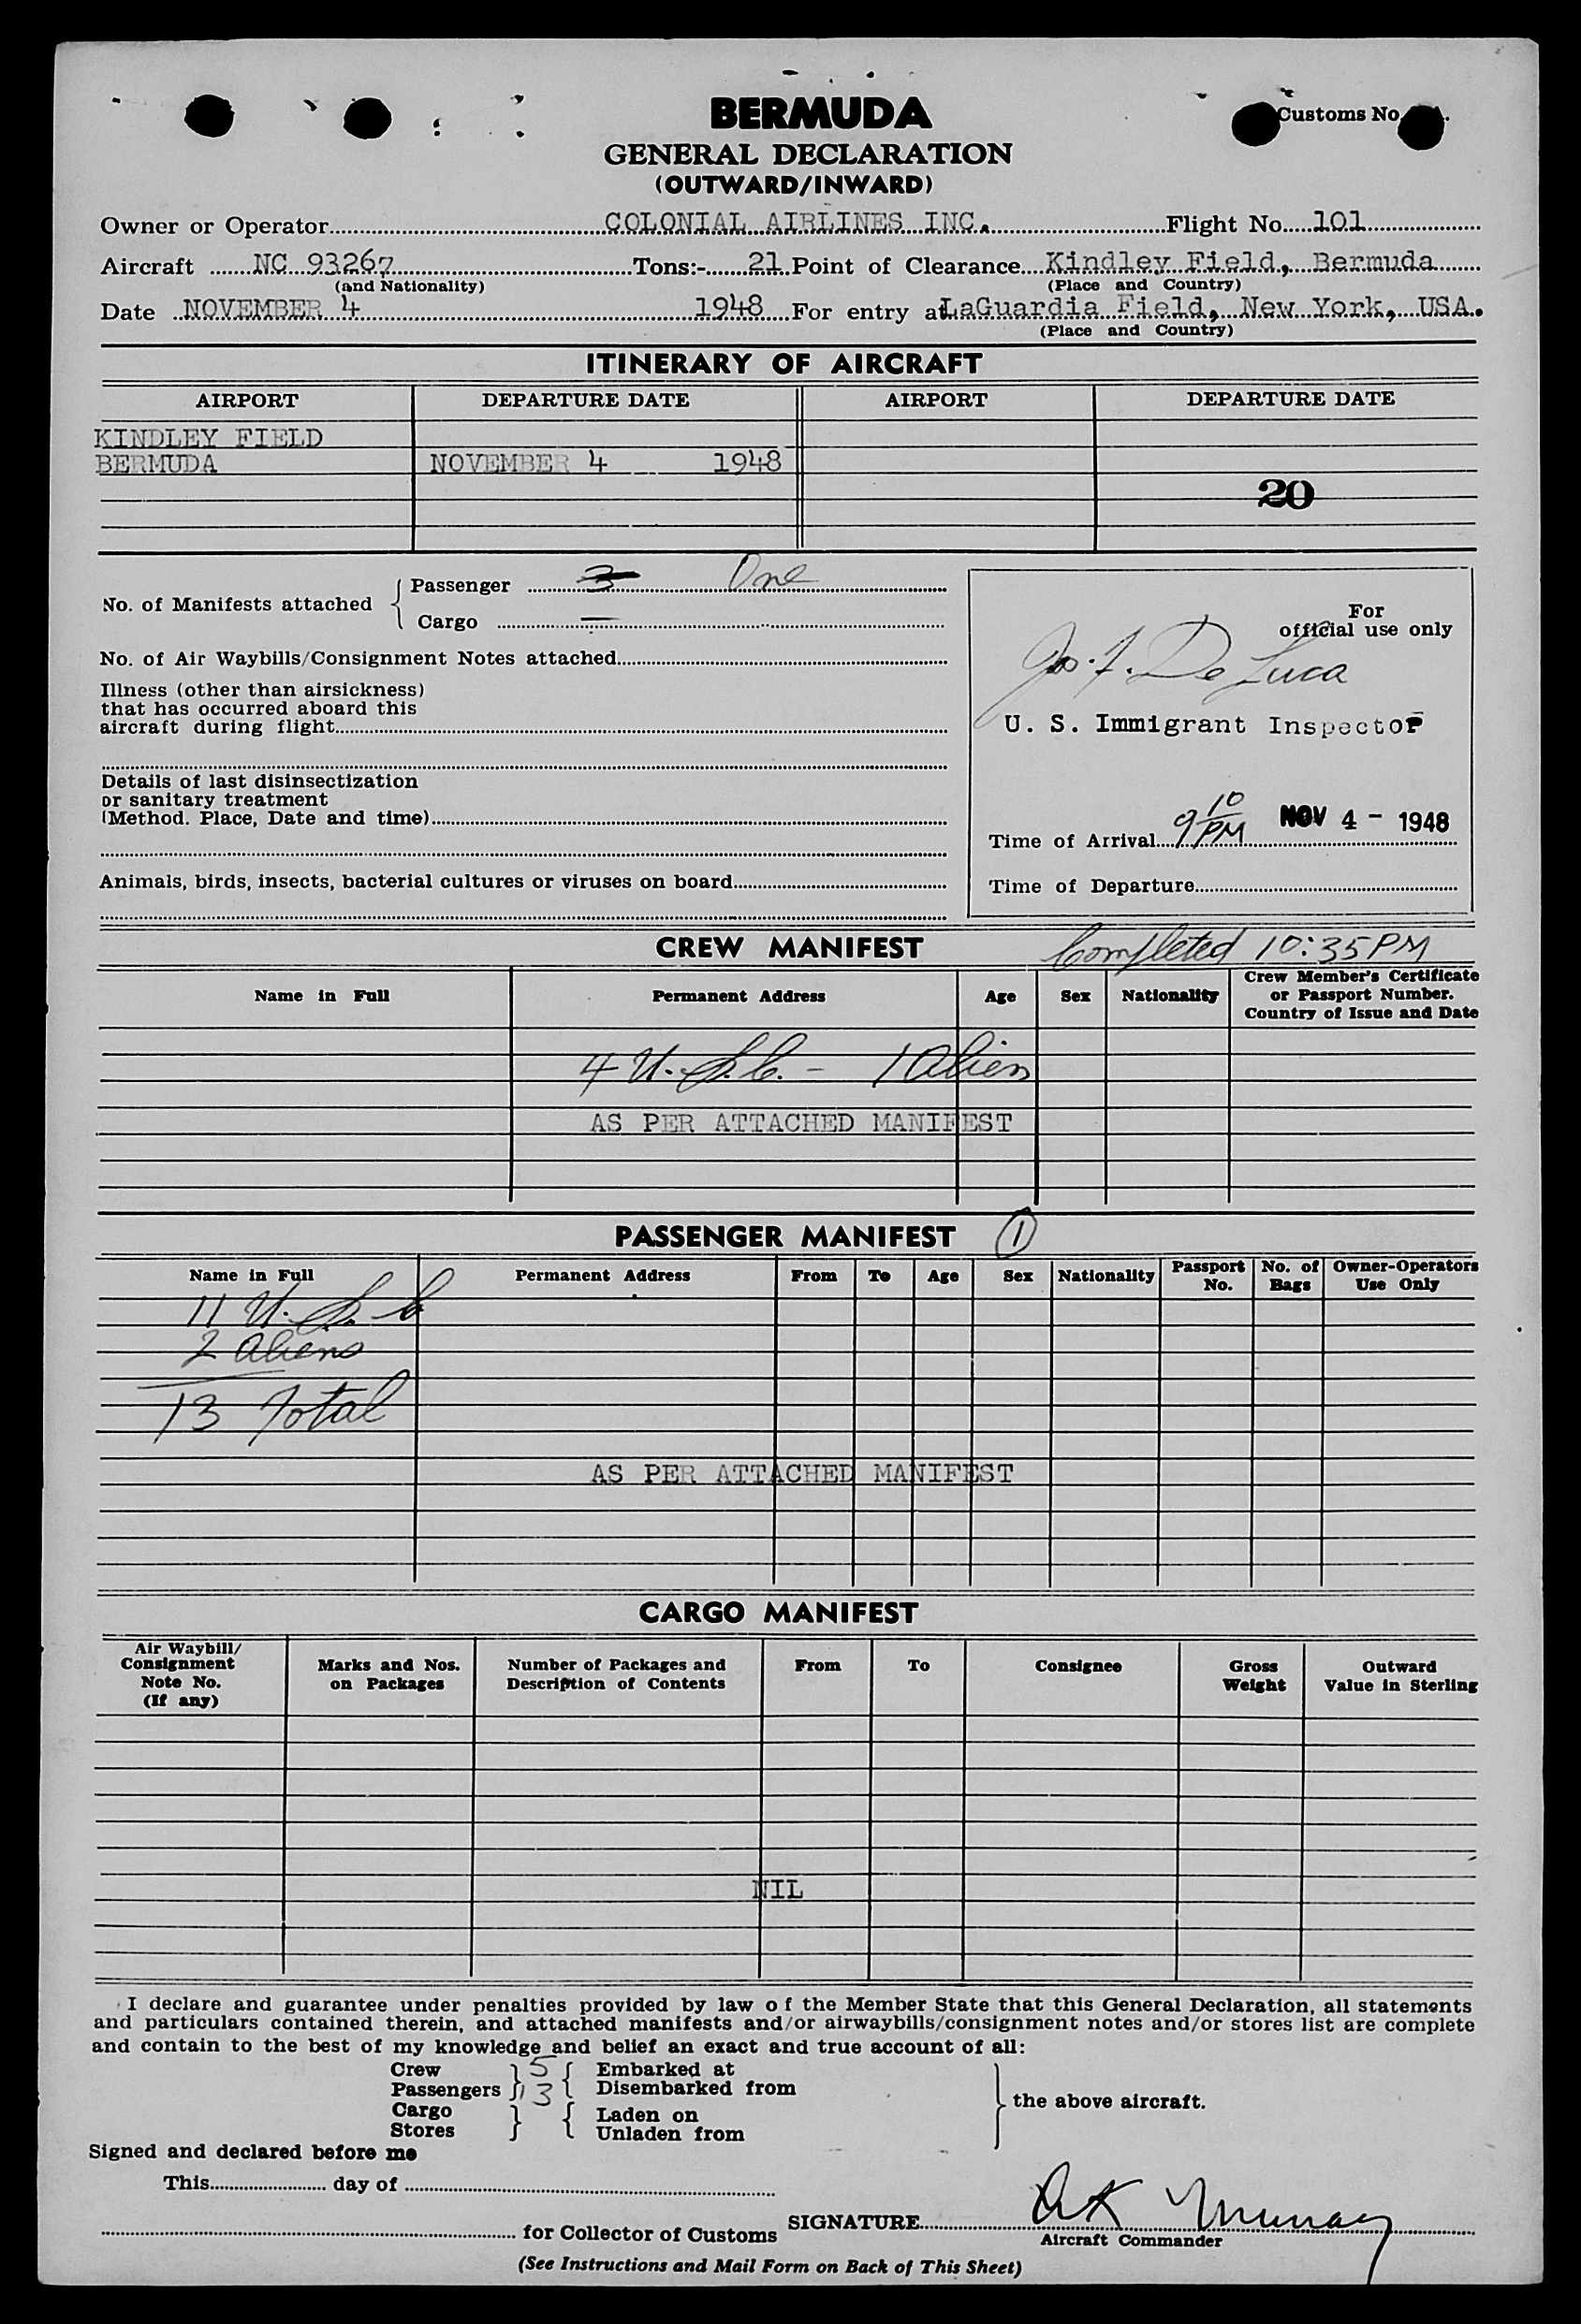 BERMUDA
Customs No.
GENERAL DECLARATION
(OUTWARD/INWARD)
Owner or Operator COLONIAL AIRLINES INC. Flight No. 101
Aircraft NC 93267 Tons:- 21 Point of Clearance Kindley Field, Bermuda
(and Nationality) (Place and Country)
Date NOVEMBER 4 1948 For entry at LaGuardia Field, New York, USA.
(Place and Country)
ITINERARY OF AIRCRAFT
AIRPORT DEPARTURE DATE AIRPORT DEPARTURE DATE
KINDLEY FIELD
BERMUDA NOVEMBER 4 1948
20
No. of Manifests attached
Passenger 3 One
Cargo —
No. of Air Waybills/Consignment Notes attached
Illness (other than airsickness)
that has occurred aboard this
aircraft during flight
Details of last disinsectization
or sanitary treatment
(Method. Place, Date and time)
Animals, birds, insects, bacterial cultures or viruses on board
For
official use only
Jos. F. De Luca
U. S. Immigrant Inspector
Time of Arrival 9 10 PM NOV 4 - 1948
Time of Departure
CREW MANIFEST Completed 10:35 PM
Name in Full Permanent Address Age Sex Nationality Crew Member's Certificate
or Passport Number.
Country of Issue and Date
4 U.S.C. - 1 Alien
AS PER ATTACHED MANIFEST
PASSENGER MANIFEST 1
Name in Full Permanent Address From To Age Sex Nationality Passport No. No. of Bags Owner-Operators Use Only
11 U.S.C
2 Aliens
13 Total
AS PER ATTACHED MANIFEST
CARGO MANIFEST
Air Waybill/
Consignment
Note No.
(If any)
Marks and Nos.
on Packages
Number of Packages and
Description of Contents
From To Consignee
Gross
Weight
Outward
Value in Sterling
NIL
I declare and guarantee under penalties provided by law of the Member State that this General Declaration, all statements
and particulars contained therein, and attached manifests and/or airwaybills/consignment notes and/or stores list are complete
and contain to the best of my knowledge and belief an exact and true account of all:
Crew 5 Embarked at
Passengers 13 Disembarked from
the above aircraft.
Cargo Laden on
Stores Unladen from
Signed and declared before me
This day of
SIGNATURE Murray
for Collector of Customs
Aircraft Commander
(See Instructions and Mail Form on Back of This Sheet)